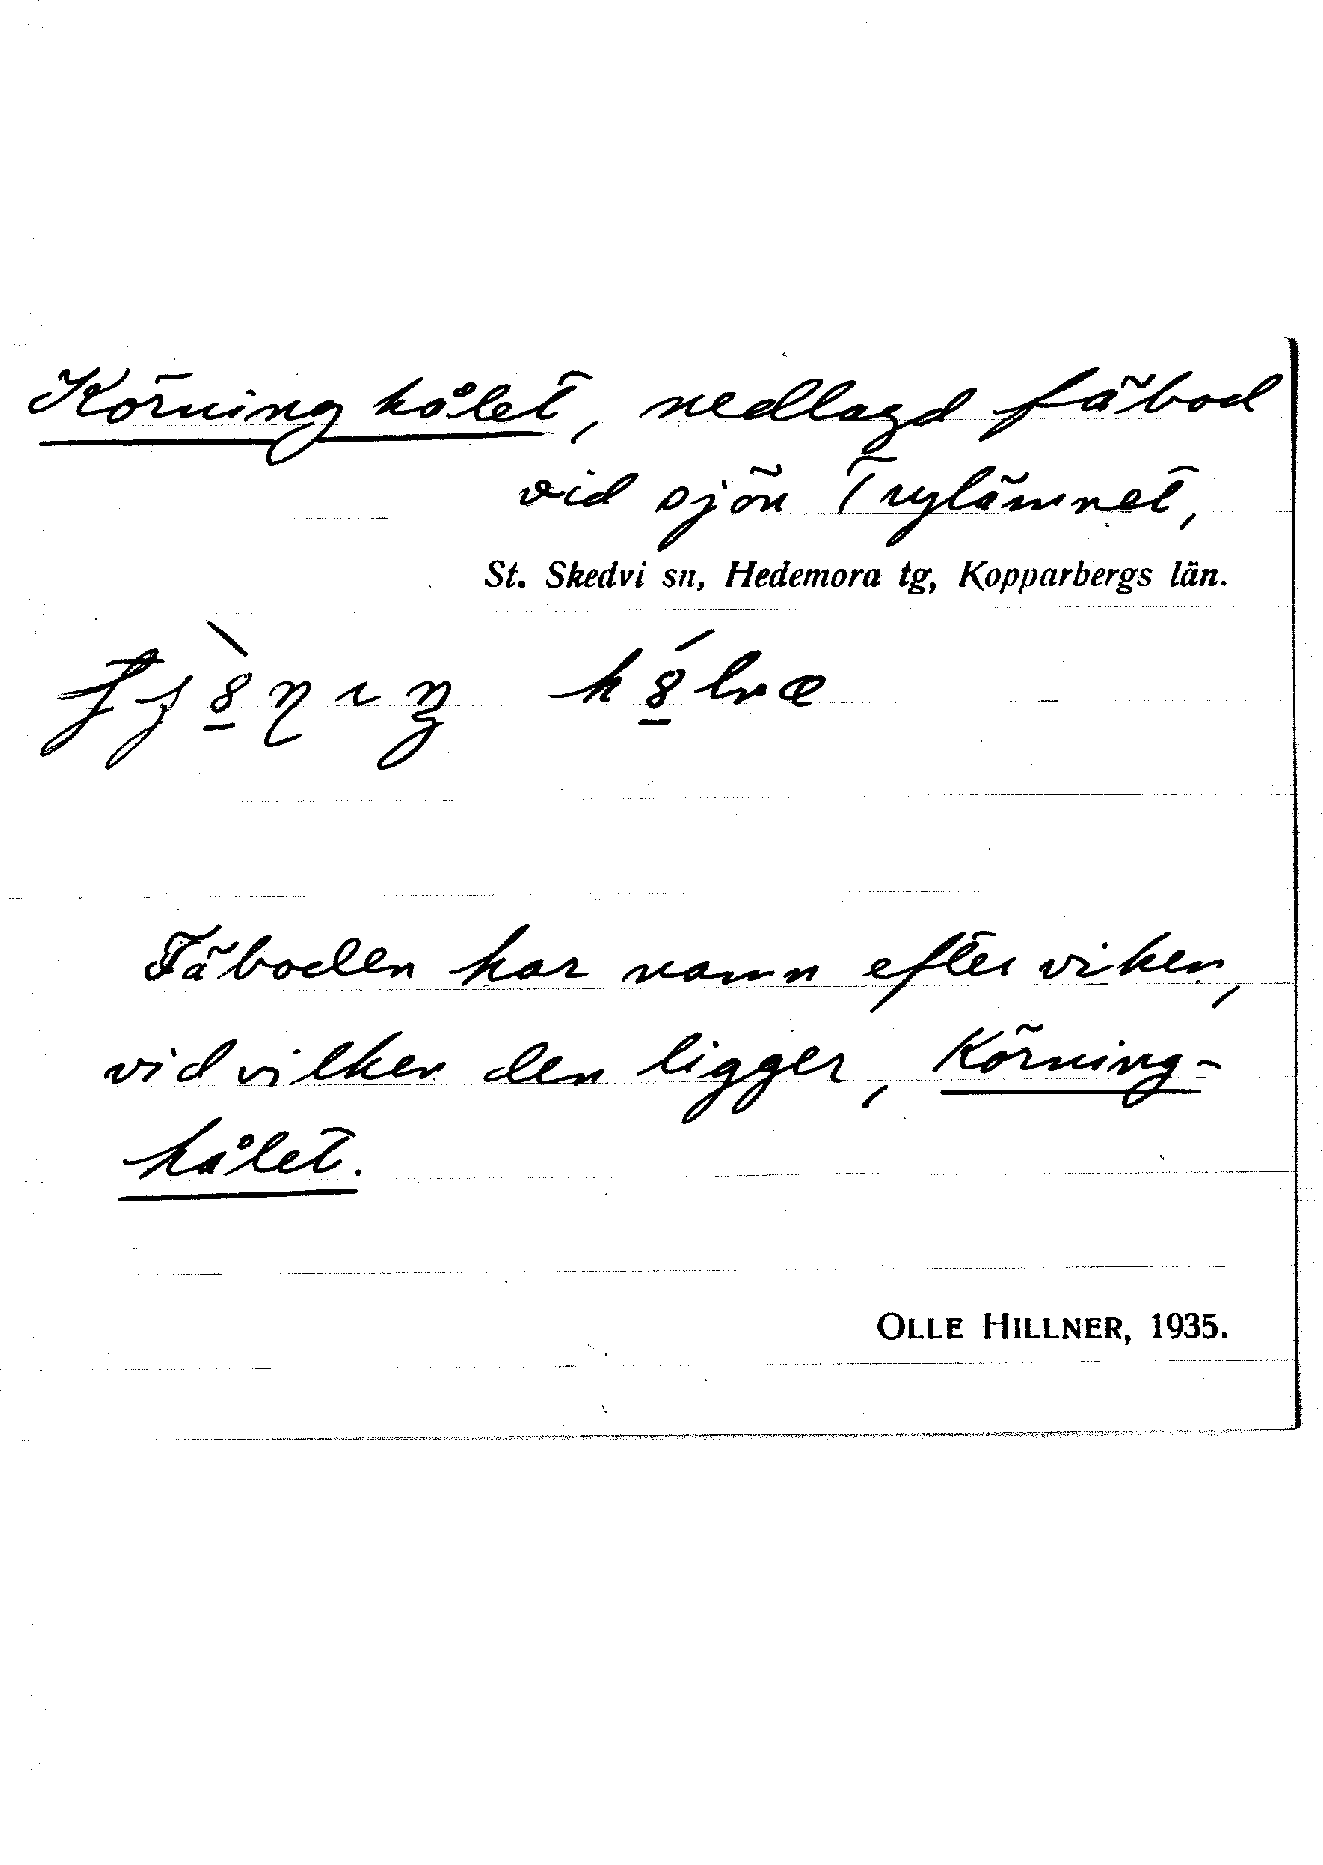 Körninghålet, nedlagd fäbod
vid sjön Trylämnet,
St. Skedvi sn, Hedemora tg, Kopparbergs län.
Fäboden har namn efter viken,
vid vilken den ligger, Körning-
hålet.
OLLE HILLNER, 1935.